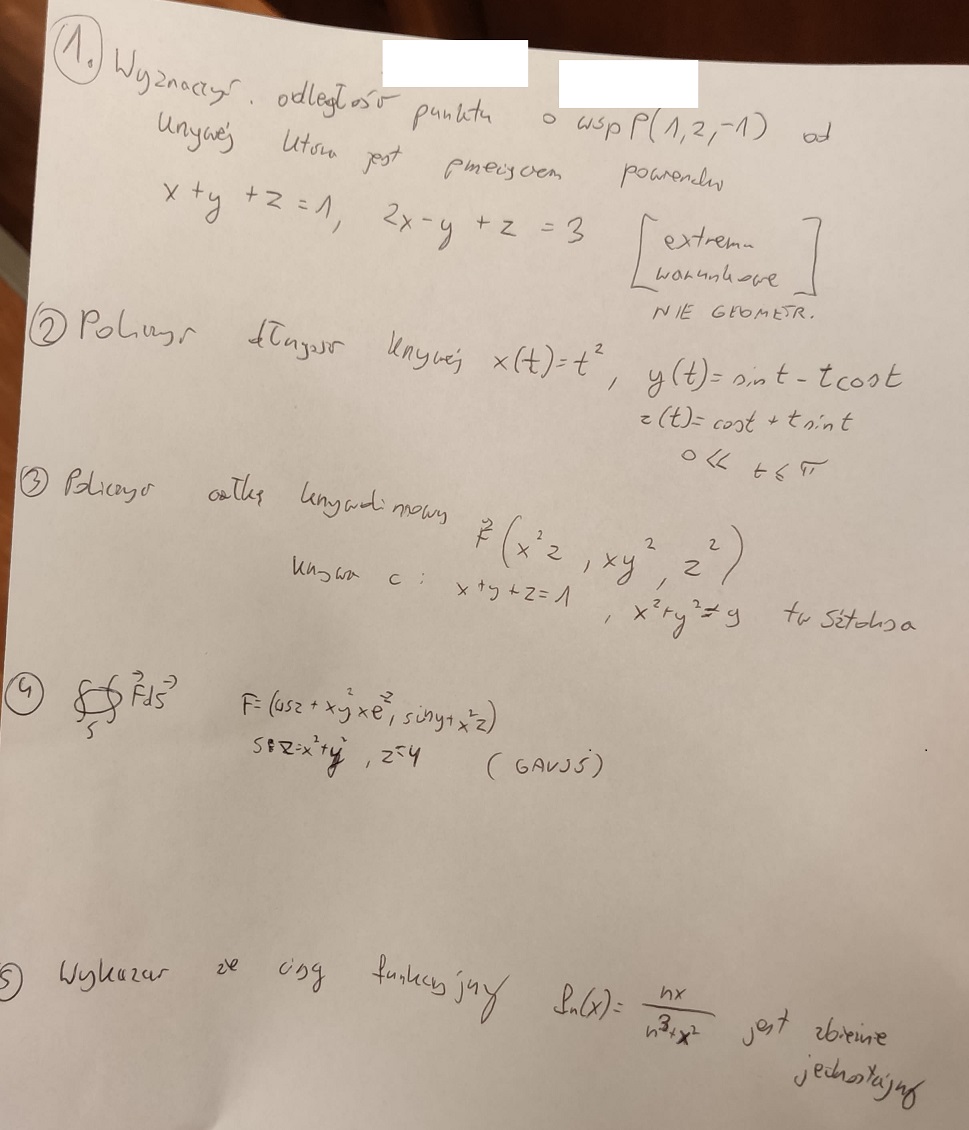 1. Wyznaczyć. odległość punktu o wsp P(1,2,-1) od
krzywej która jest przecięciem powierzchni
x+y+z=1, 2x-y+z=3 [extrema
warunkowe]
NIE GEOMETR.
2 Policzyć długość krzywej x(t)=t², y(t)=sint-tcost
z(t)=cost+tsint
0<< t≤π
3 Policzyć całkę krzywoliniowy F(x²z, xy², z²)
krzywa C: x+y+z=1, x²+y²=9 tw Sztoksa
4 ∯ F⃗ds⃗ F=(cosz+xy², xe⁻ᶻ, siny+x²z)
S
S: z=x²+y², z=4 (GAUSS)
5 Wykazać że ciąg funkcyjny fn(x)= nx/(n³+x²) jest zbieżne
jednostajny